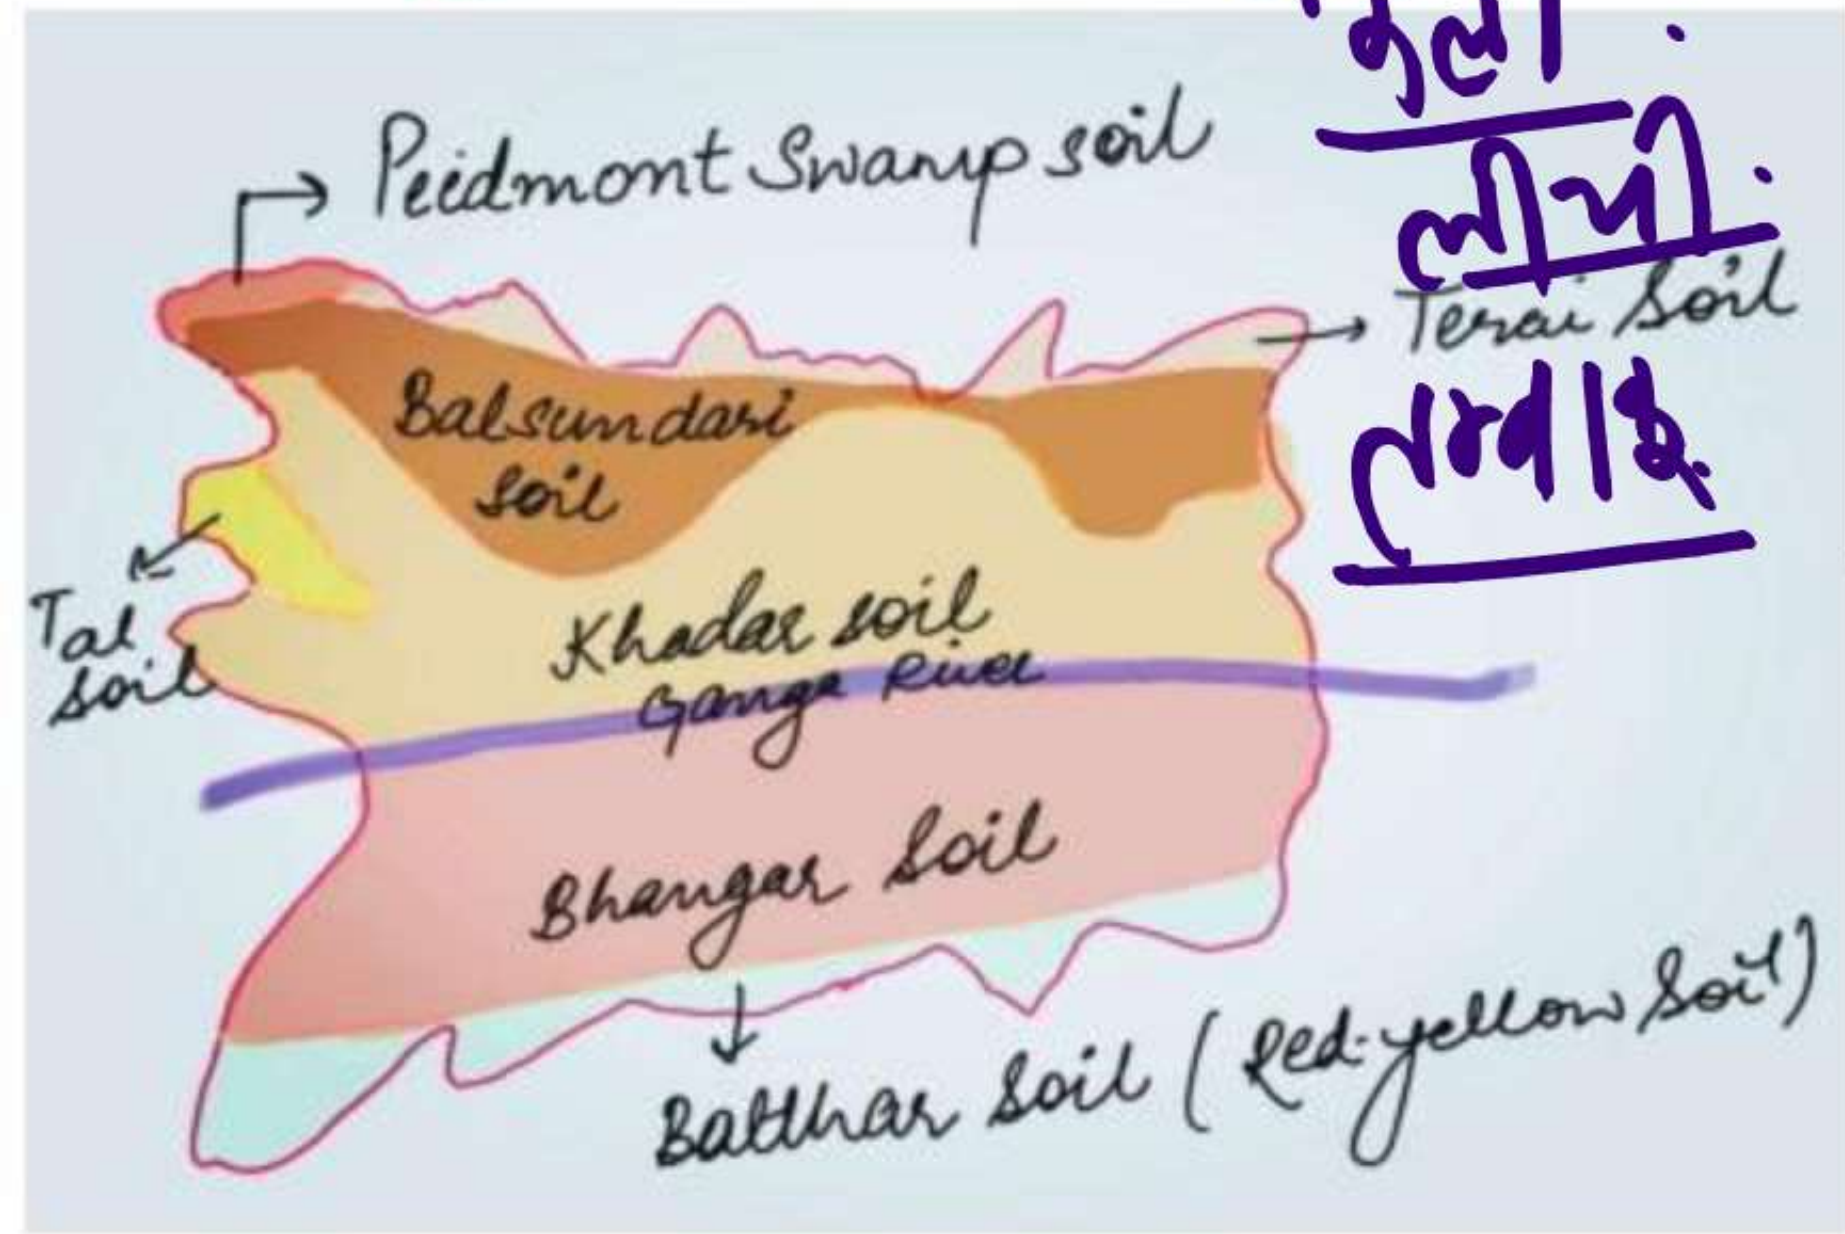 Peedmont Swamp soil
लीची
Terai Soil
तम्बाकू
Balsundari
soil
Tal
soil
Khadar soil
Ganga River
Bhangar Soil
Balthar Soil (Red-yellow Soil)